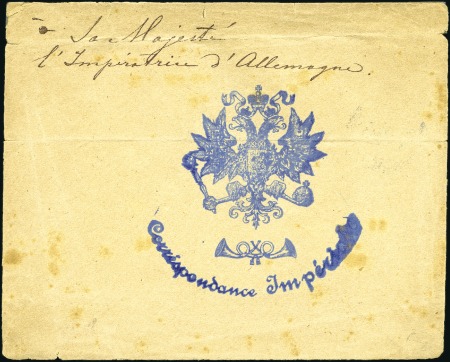 à Sa Majesté
l'Impératrice d'Allemagne.
Correspondance Impériale